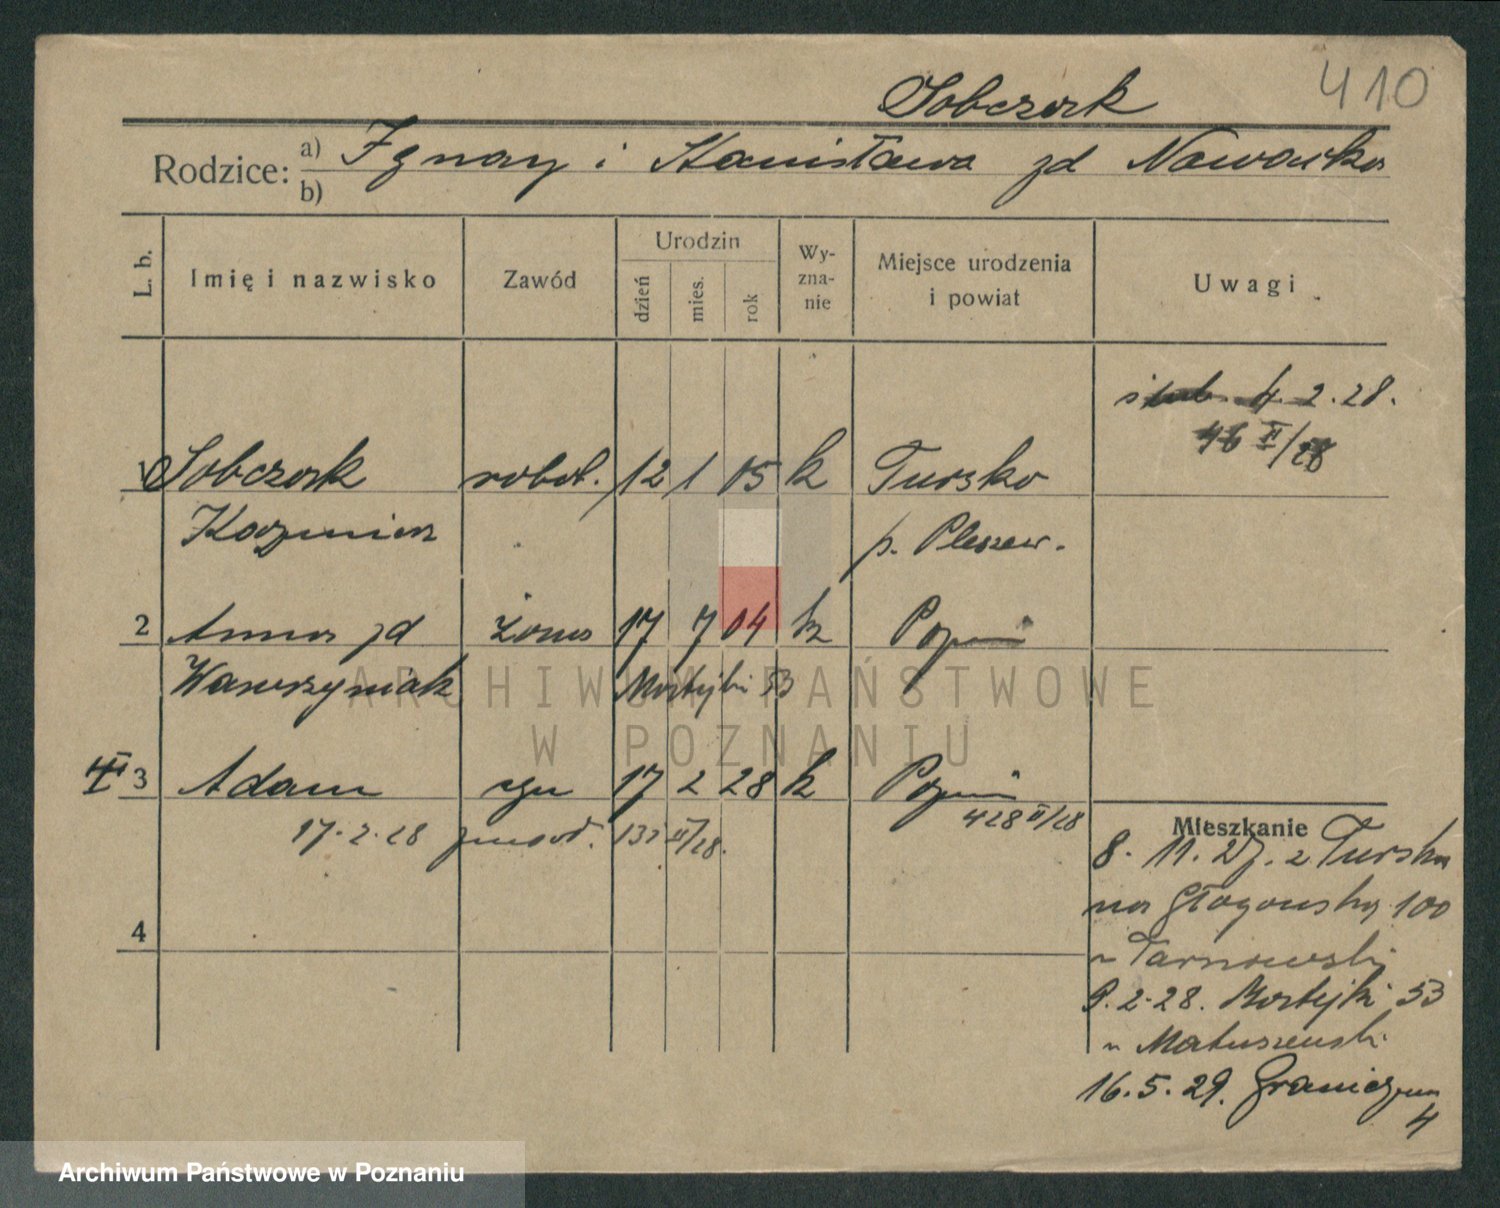 410
Sobczak
Rodzice: a) Ignacy i Stanisława zd Nowacka
b)
L. b. Imię i nazwisko Zawód Urodzin dzień mies. rok Wy-zna-nie Miejsce urodzenia i powiat Uwagi
ślub 4.2.28.
46 II/28
1 Sobczak robot. 12 1 05 k Tursko
Kazimierz p. Pleszew.
2 Anna zd żona 17 7 04 k Pozn
Wawrzyniak 53
3 Adam syn 17 2 28 k Pozn
17.2.28 II/28. 428 II/28
4
Mieszkanie
8. 11. 27. z Turska
na Głogowską 100
u Tarnowski
9.2.28. 53
u Matuszewski
16.5.29. Graniczna
4
ARCHIWUM PAŃSTWOWE
W POZNANIU
Archiwum Państwowe w Poznaniu